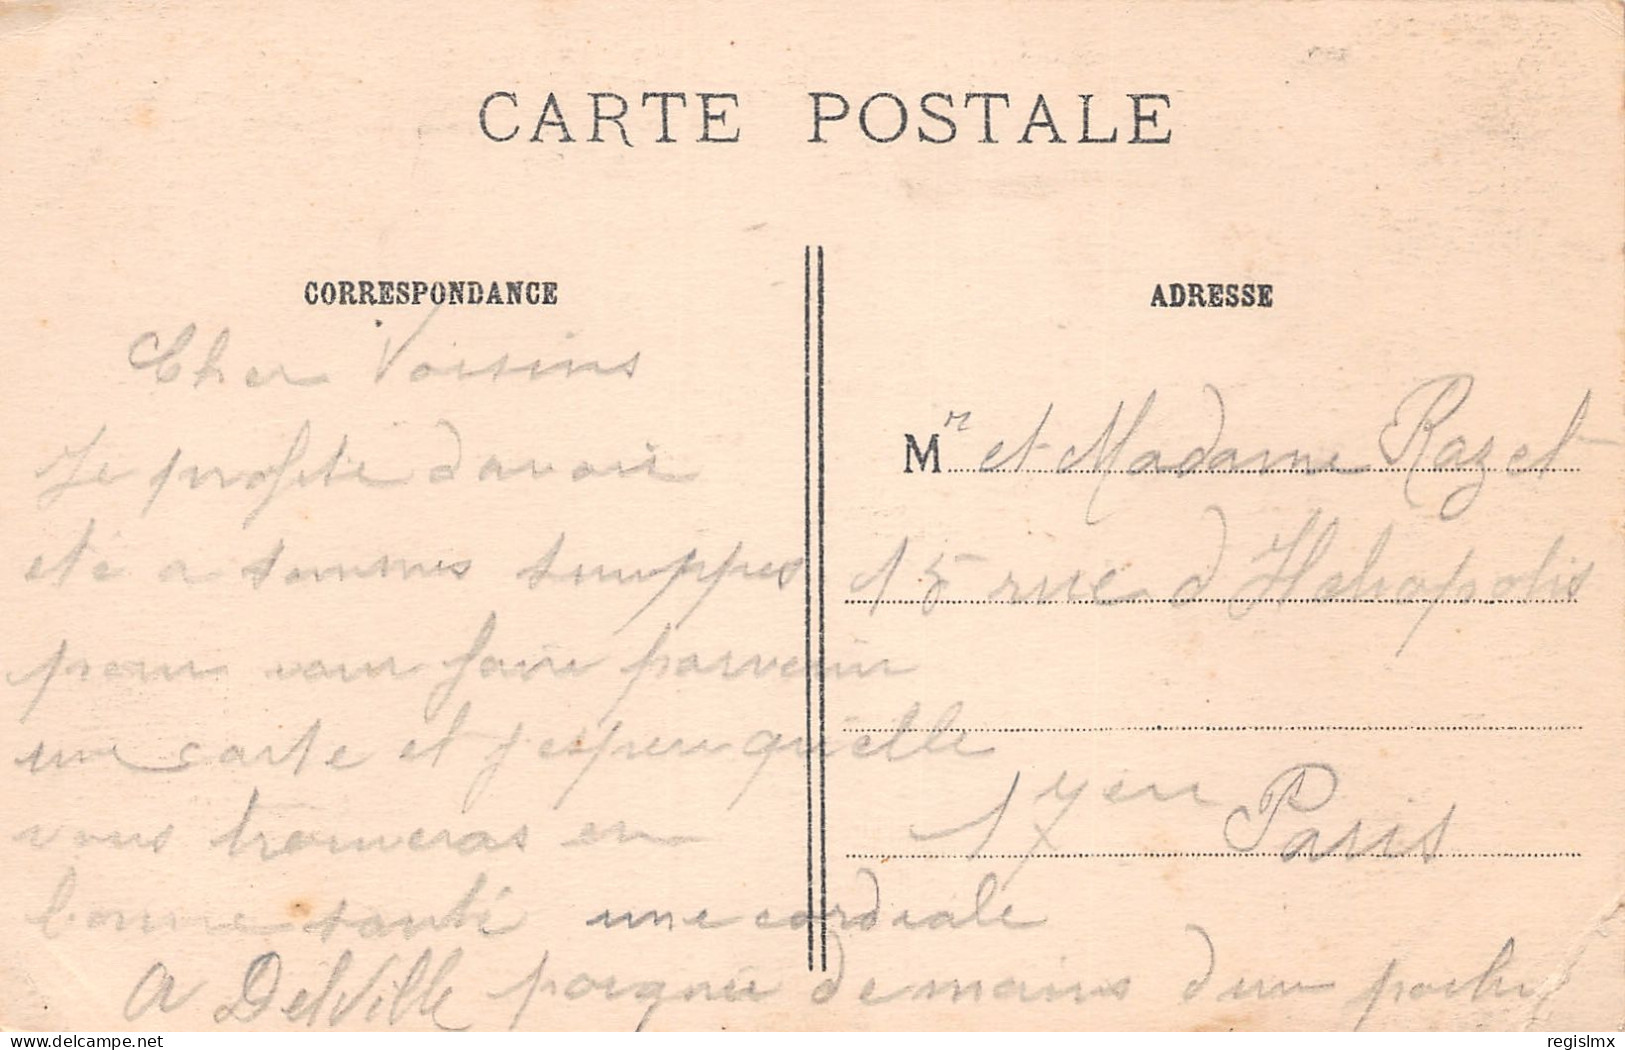 CARTE POSTALE
CORRESPONDANCE
Cher Voisins
Je profite d'avoir
eté a
pour vour faire parvenir
une carte et j'espere quelle
vous trouveras en
bonne santé une cordiale
poignée de mains d'un
ADRESSE
Mr et Madame Razet
15 rue d'Heliopolis
17 Paris
delcampe.net
regislmx